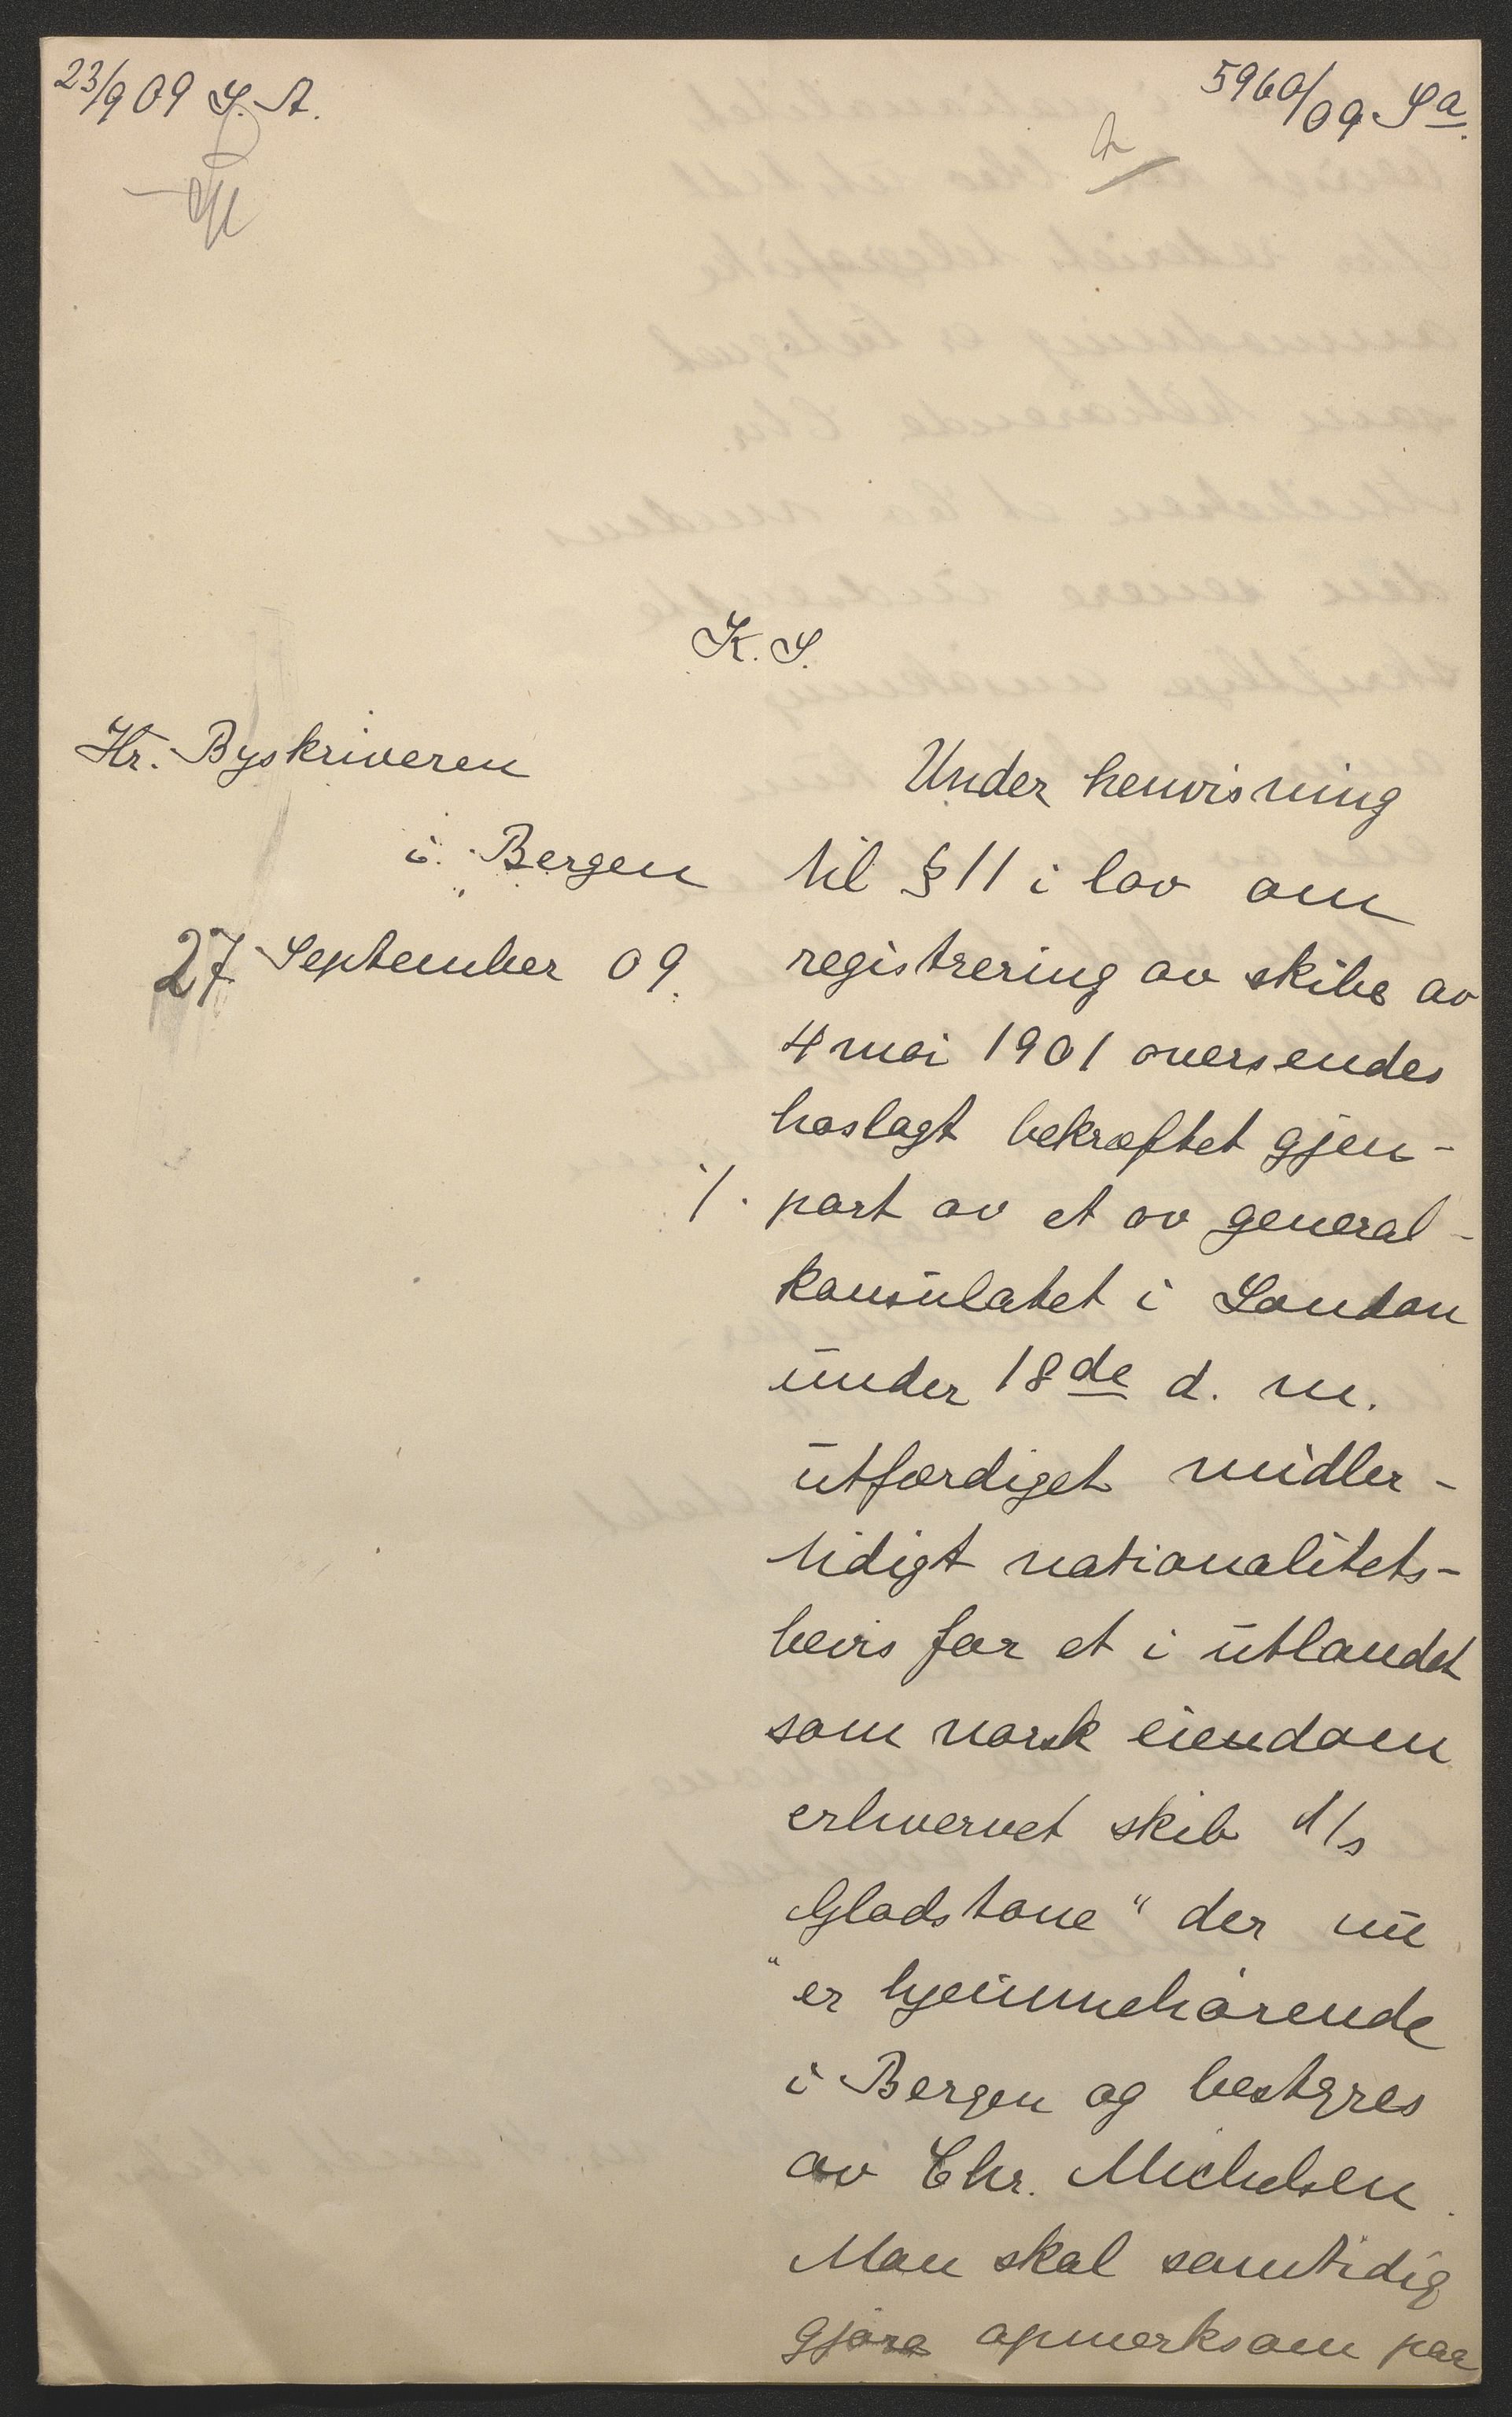 23/9 09 S. A.
5960/09 Sa.
K. S.
Hr. Byskriveren
i Bergen
27 September 09.
Under henvisning
til § 11 i lov om
registrering av skibe av
4 mai 1901 oversendes
hoslagt bekræftet gjen-
./. part av et av general-
konsulatet i London
under 18de d. m.
utfærdiget midler-
tidigt nationalitets-
bevis for et i utlandet
som norsk eiendom
erhvervet skib d/s
"Gladstone" der nu
er hjemmehørende
i Bergen og bestyres
av Chr. Michelsen.
Man skal samtidig
gjøre opmerksom paa